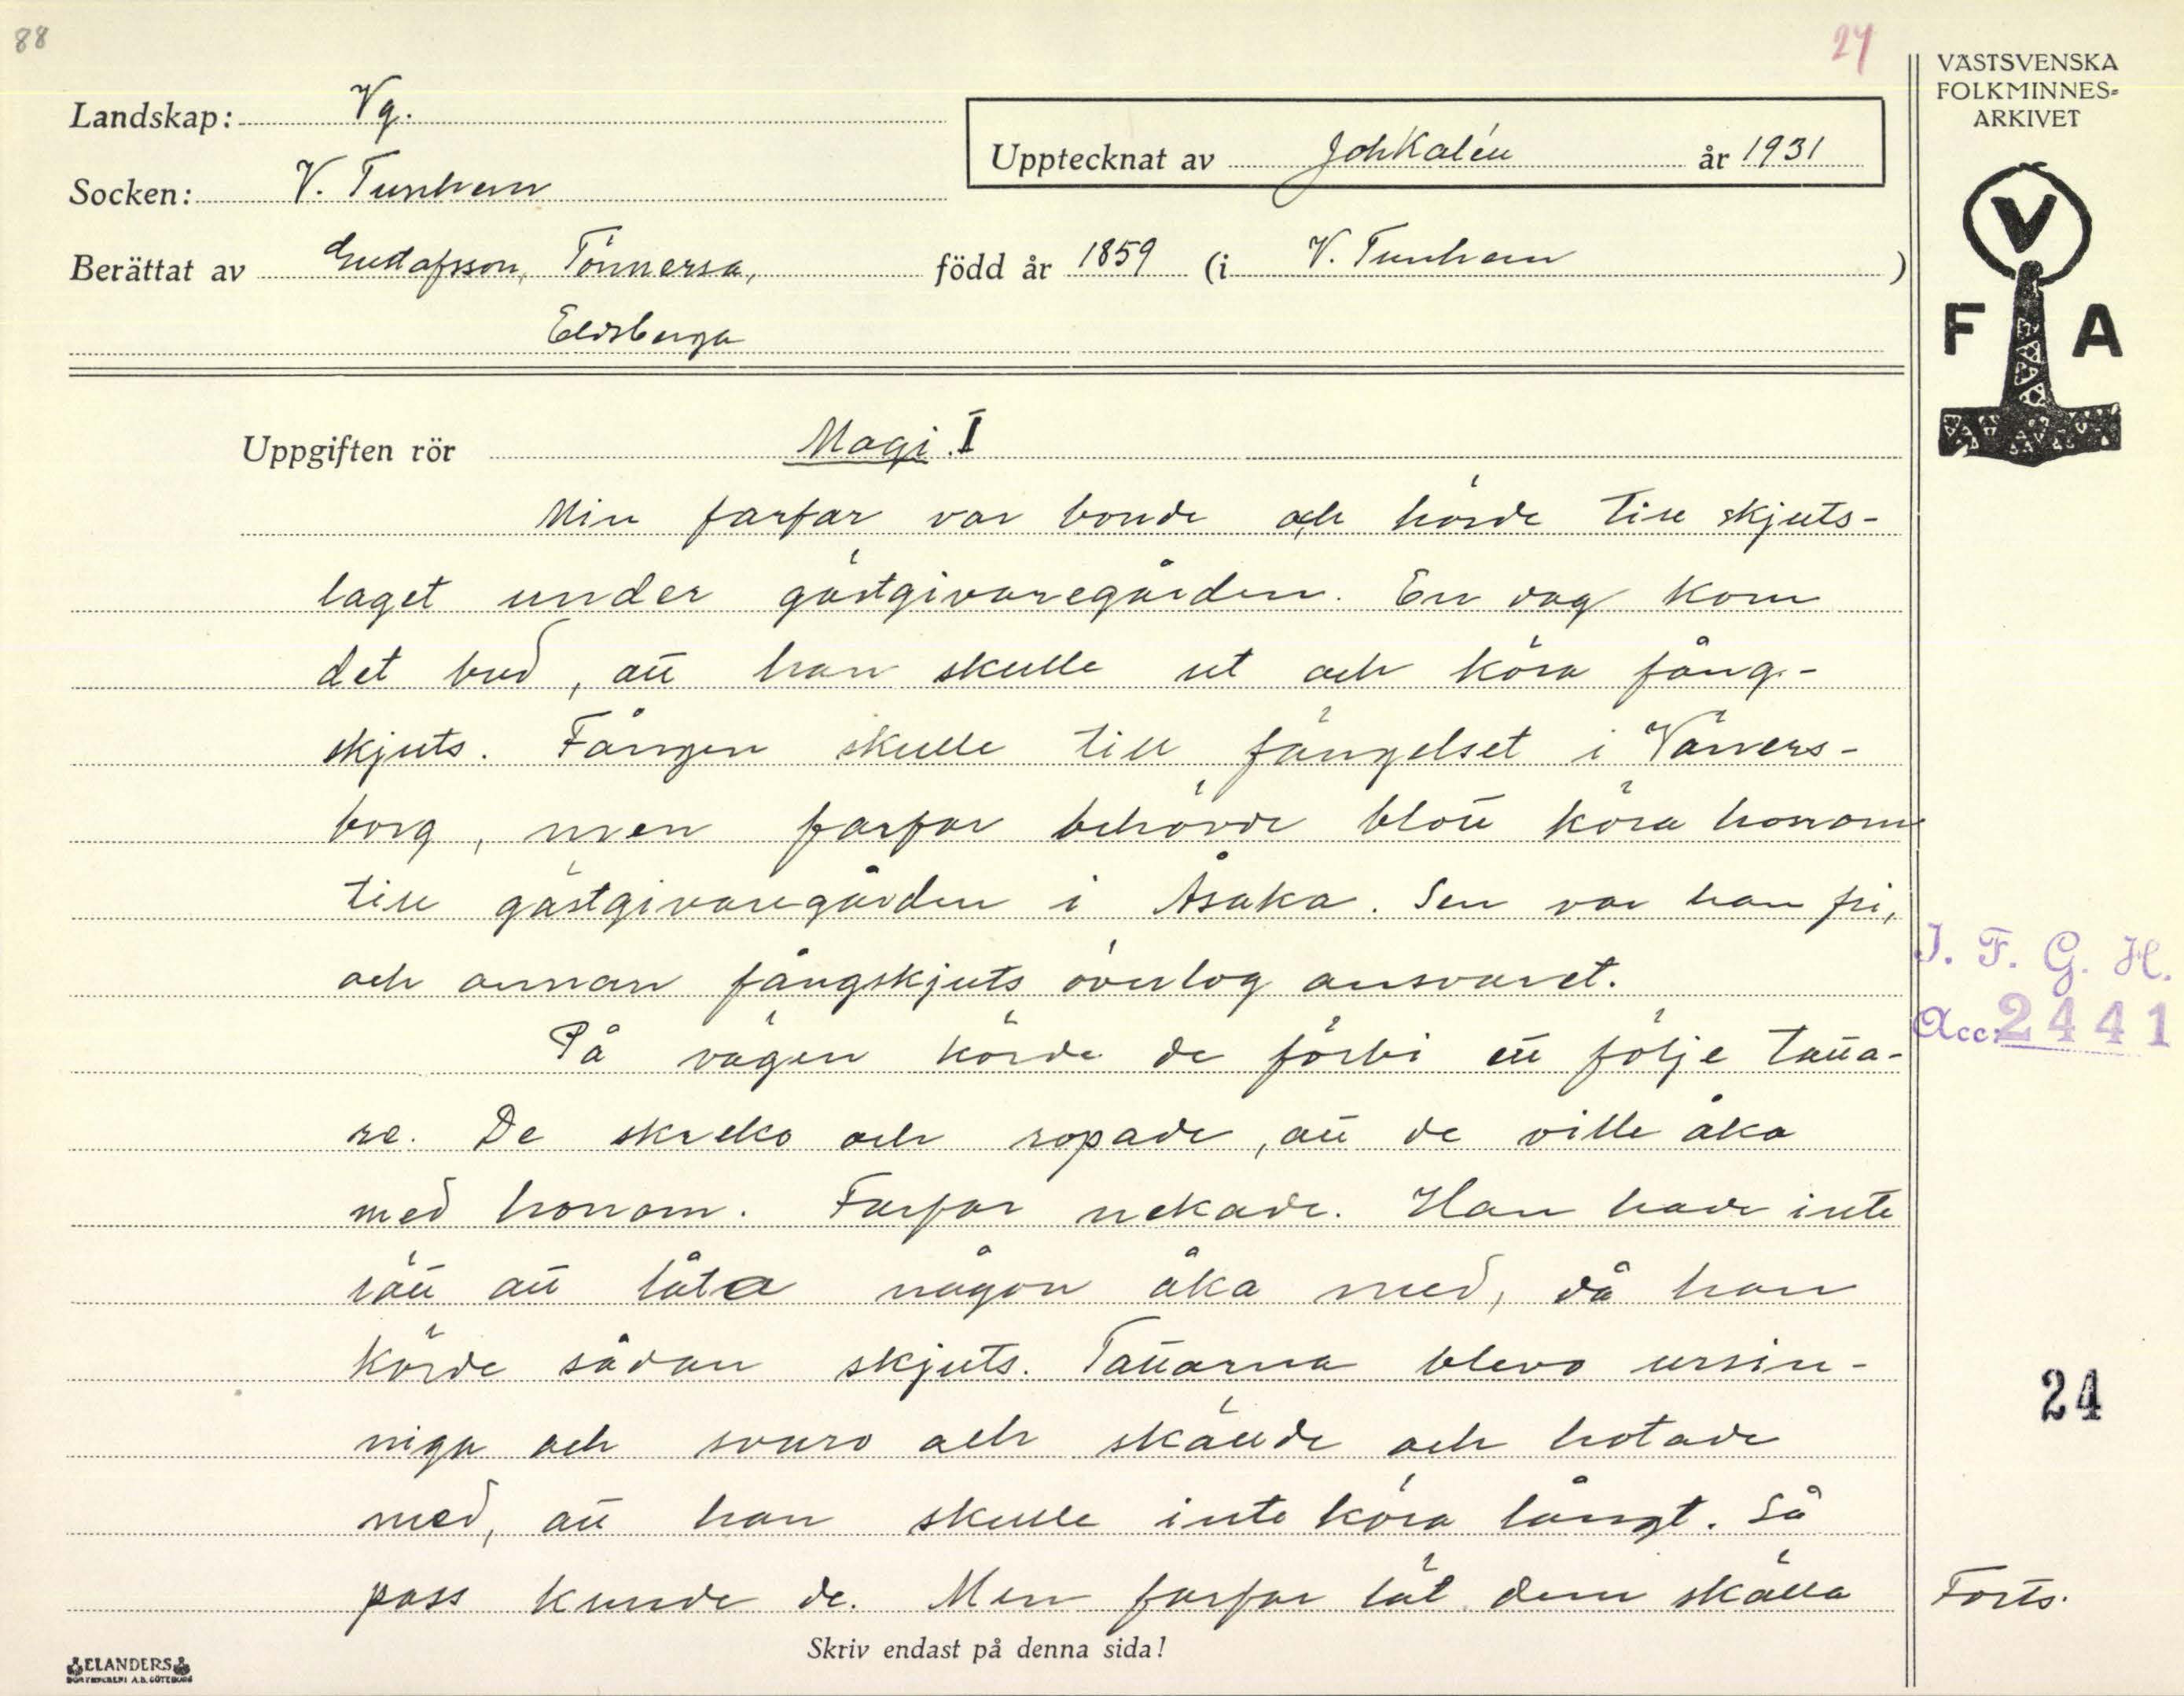 88
24
VÄSTSVENSKA
FOLKMINNES=
ARKIVET
Landskap: Vg.
Upptecknat av Joh Kalén år 1931
Socken: V. Tunhem
Berättat av Gustafsson, Tönnersa, född år 1859 (i V. Tunhem)
Eldsberga
V
F A
Uppgiften rör Magi I
Min farfar var bonde och hörde till skjuts-
laget under gästgivaregården. En dag kom
det bud, att han skulle ut och köra fång-
skjuts. Fången skulle till fängelset i Väners-
borg, men farfar behövde blott köra honom
till gästgivaregården i Åsaka. Sen var han fri,
och annan fångskjuts övertog ansvaret.
På vägen körde de förbi ett följe tatta-
re. De skreko och ropade, att de ville åka
med honom. Farfar nekade. Han hade inte
rätt att låta någon åka med, då han
körde sådan skjuts. Tattarna blevo ursin-
niga och svuro och skällde och hotade
med, att han skulle inte köra långt. Så
pass kunde de. Men farfar lät dem skälla
I. F. G. H.
Acc: 2441
24
Forts.
Skriv endast på denna sida!
ELANDERS
BOKTRYCKERI A.B. GÖTEBORG